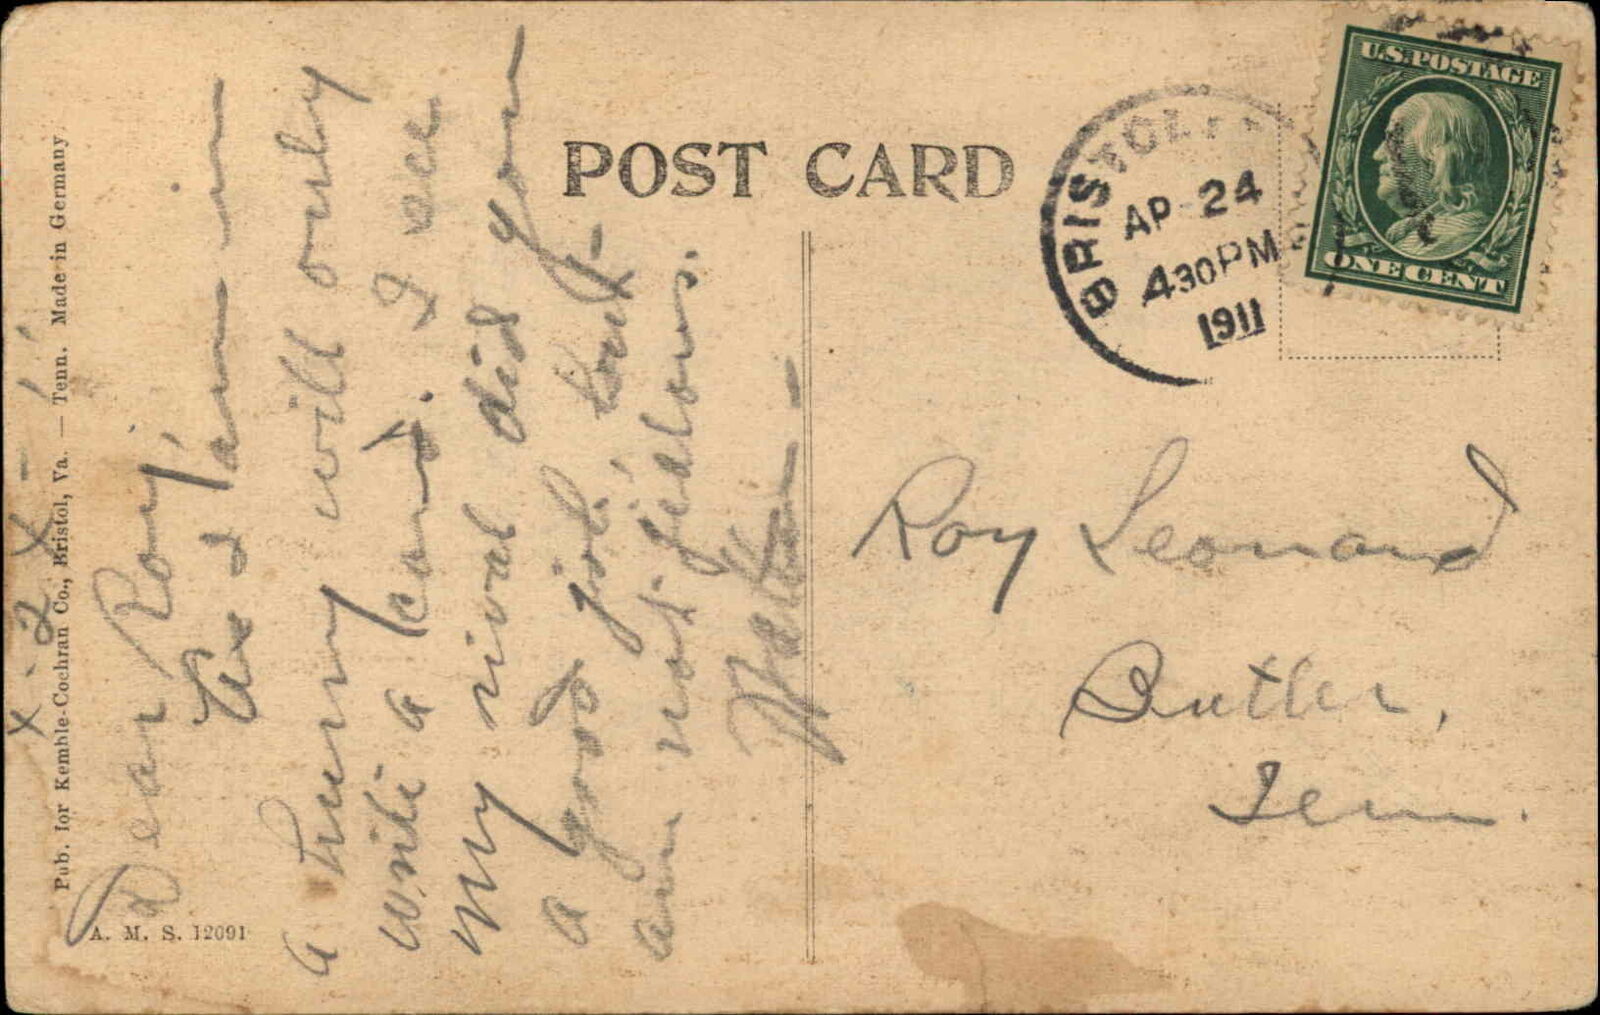 POST CARD
BRISTOL
AP 24
430 PM
1911
U.S. POSTAGE
ONE CENT
Pub. for Kemble-Cochran Co., Bristol, Va. — Tenn. Made in Germany
A. M. S. 12091
Dear Roy;
I am in
a hurry will only
write a card. I see
my rival did you
a good job, but
am not jealous.
Roy Leonard
Butler,
Tenn.